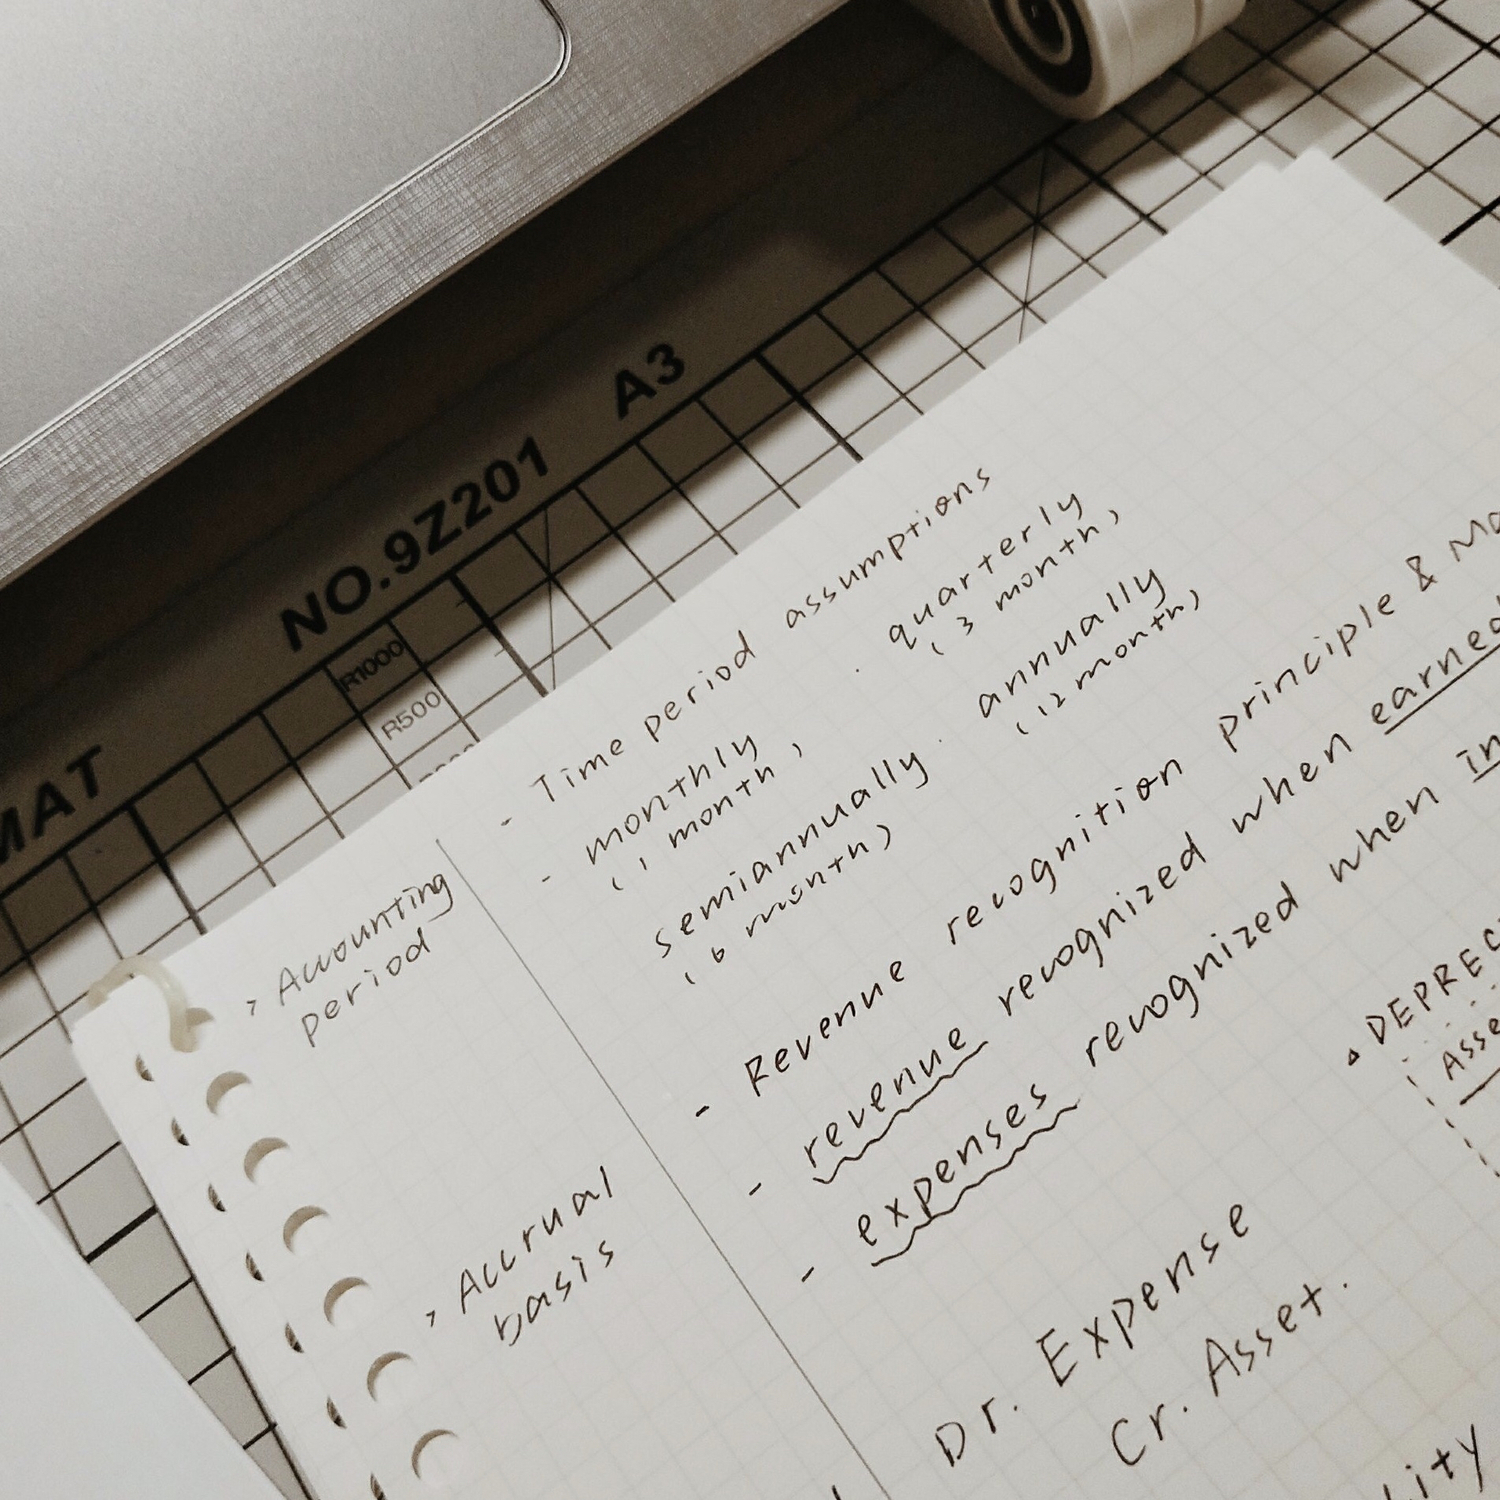 A3
NO.9Z201
MAT
R1000
R500
- Time period assumptions
- monthly
(1 month)
. quarterly
(3 month)
semiannually
(6 month)
. annually
(12 month)
> Accounting
period
- Revenue recognition principle &
- revenue recognized when earned
- expenses recognized when
> Accrual
basis
Dr. Expense
Cr. Asset.